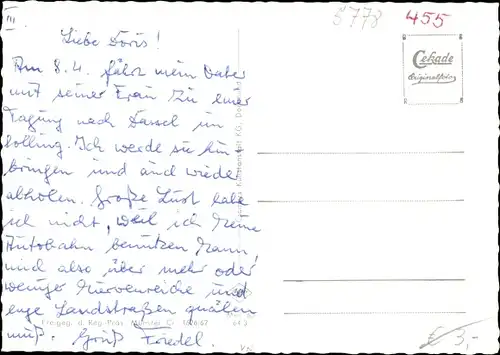 III.
5778 455
Cekade
Originalfoto
Liebe Doris!
Am 8.4. fährt mein Vater
mit seiner Frau zu einer
Tagung nach Dassel im
Solling. Ich werde sie hin
bringen und auch wieder
abholen. Große Lust habe
ich nicht, weil ich keine
Autobahn benutzen kann,
und also über mehr oder
weniger kurvenreiche und
enge Landstraßen quälen
muß. Gruß Friedel.
Freigeg. d. Reg.-Präs. Münster
€ 3,-